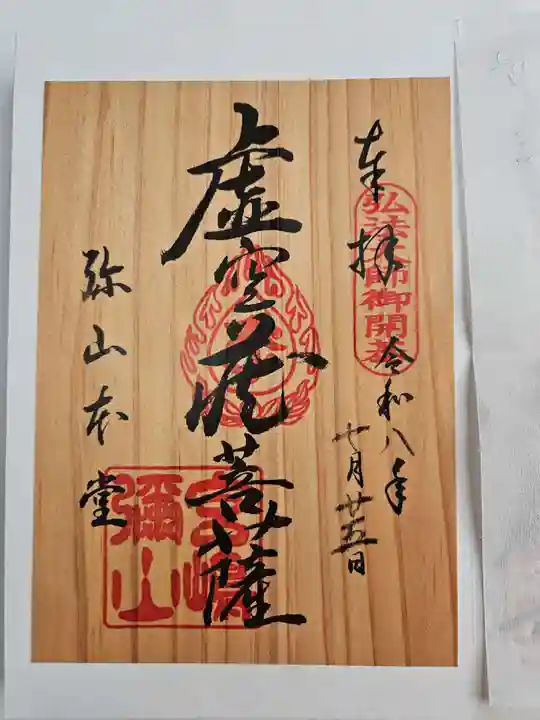 奉拝
弘法大師御開基
令和八年
七月廿五日
虚空蔵菩薩
宮嶋
彌山
弥山本堂